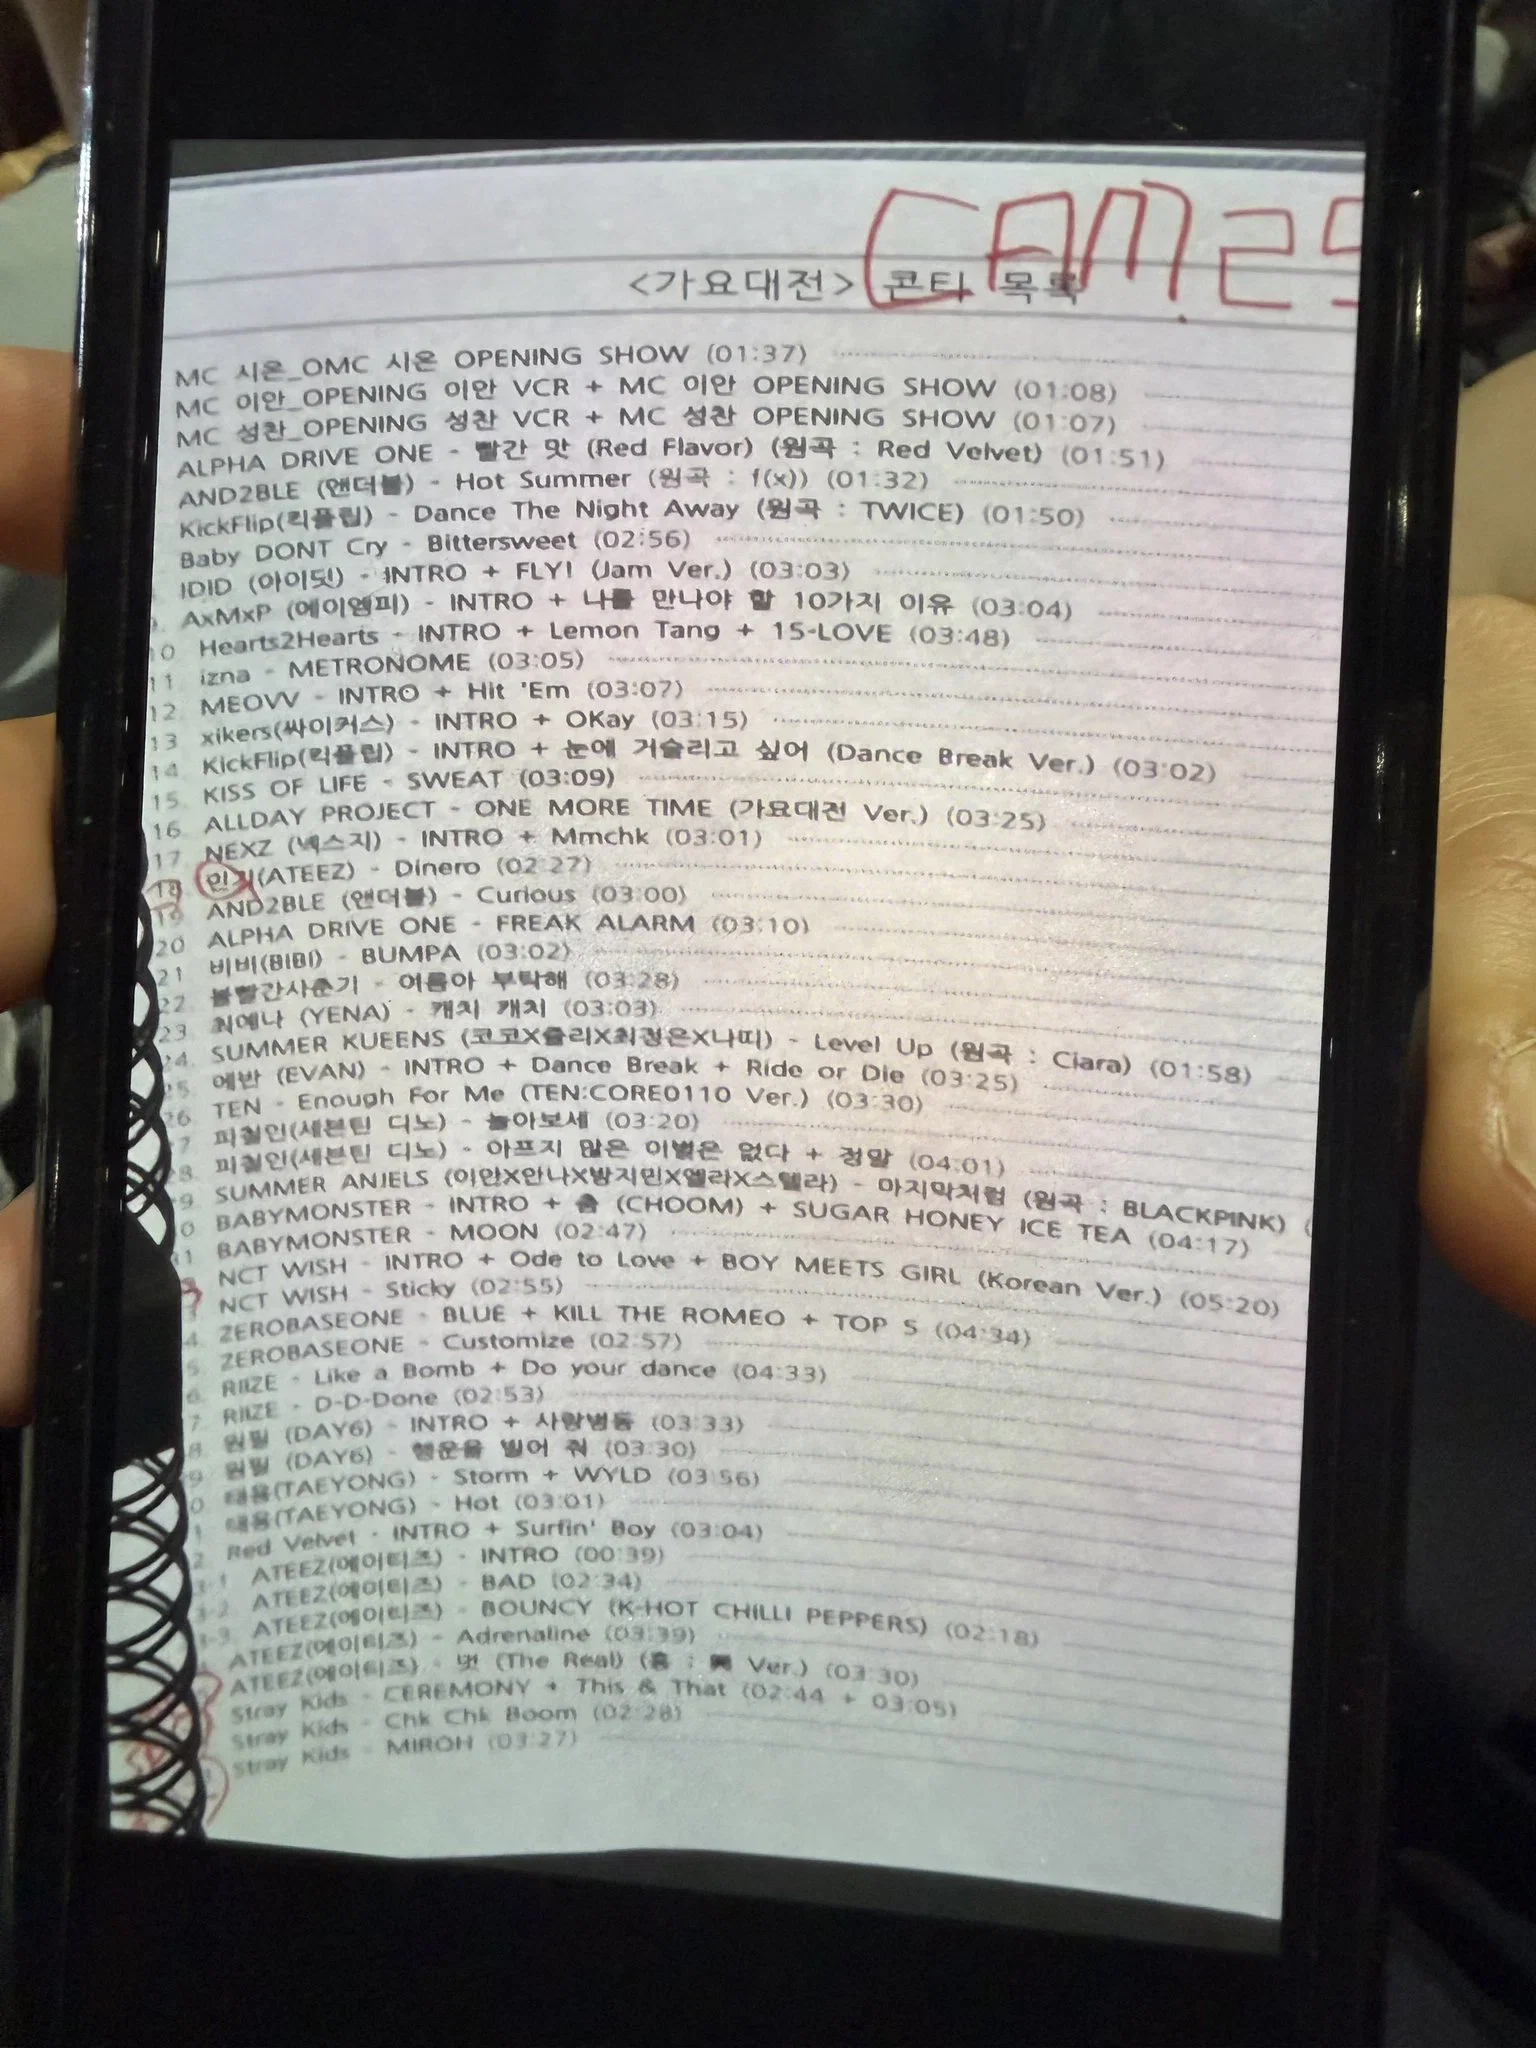 CAM 25
<가요대전> 콘티 목록
MC 시온_OMC 시온 OPENING SHOW (01:37)
MC 이안_OPENING 이안 VCR + MC 이안 OPENING SHOW (01:08)
MC 성찬_OPENING 성찬 VCR + MC 성찬 OPENING SHOW (01:07)
ALPHA DRIVE ONE - 빨간 맛 (Red Flavor) (원곡 : Red Velvet) (01:51)
AND2BLE (앤더블) - Hot Summer (원곡 : f(x)) (01:32)
KickFlip(킥플립) - Dance The Night Away (원곡 : TWICE) (01:50)
Baby DONT Cry - Bittersweet (02:56)
IDID (아이딧) - INTRO + FLY! (Jam Ver.) (03:03)
9. AxMxP (에이엠피) - INTRO + 나를 만나야 할 10가지 이유 (03:04)
10 Hearts2Hearts - INTRO + Lemon Tang + 15-LOVE (03:48)
11 izna - METRONOME (03:05)
12 MEOVV - INTRO + Hit 'Em (03:07)
13 xikers(싸이커스) - INTRO + OKay (03:15)
14 KickFlip(킥플립) - INTRO + 눈에 거슬리고 싶어 (Dance Break Ver.) (03:02)
15 KISS OF LIFE - SWEAT (03:09)
16 ALLDAY PROJECT - ONE MORE TIME (가요대전 Ver.) (03:25)
17 NEXZ (넥스지) - INTRO + Mmchk (03:01)
18 민기(ATEEZ) - Dinero (02:27)
19 AND2BLE (앤더블) - Curious (03:00)
20 ALPHA DRIVE ONE - FREAK ALARM (03:10)
21 비비(BIBI) - BUMPA (03:02)
22 볼빨간사춘기 - 여름아 부탁해 (03:28)
23 최예나 (YENA) - 캐치 캐치 (03:03)
24 SUMMER KUEENS (코코X쥴리X최정은X나띠) - Level Up (원곡 : Ciara) (01:58)
25 에반 (EVAN) - INTRO + Dance Break + Ride or Die (03:25)
26 TEN - Enough For Me (TEN:CORE0110 Ver.) (03:30)
7 피철인(세븐틴 디노) - 놀아보세 (03:20)
8 피철인(세븐틴 디노) - 아프지 않은 이별은 없다 + 정말 (04:01)
9 SUMMER ANJELS (이안X안나X방지민X엘라X스텔라) - 마지막처럼 (원곡 : BLACKPINK) (
0 BABYMONSTER - INTRO + 춤 (CHOOM) + SUGAR HONEY ICE TEA (04:17)
1 BABYMONSTER - MOON (02:47)
NCT WISH - INTRO + Ode to Love + BOY MEETS GIRL (Korean Ver.) (05:20)
3 NCT WISH - Sticky (02:55)
4 ZEROBASEONE - BLUE + KILL THE ROMEO + TOP 5 (04:34)
5 ZEROBASEONE - Customize (02:57)
6 RIIZE - Like a Bomb + Do your dance (04:33)
7 RIIZE - D-D-Done (02:53)
8 원필 (DAY6) - INTRO + 사랑병동 (03:33)
9 원필 (DAY6) - 행운을 빌어 줘 (03:30)
0 태용(TAEYONG) - Storm + WYLD (03:56)
1 태용(TAEYONG) - Hot (03:01)
2 Red Velvet - INTRO + Surfin' Boy (03:04)
3-1 ATEEZ(에이티즈) - INTRO (00:39)
3-2 ATEEZ(에이티즈) - BAD (02:34)
3-3 ATEEZ(에이티즈) - BOUNCY (K-HOT CHILLI PEPPERS) (02:18)
ATEEZ(에이티즈) - Adrenaline (03:39)
ATEEZ(에이티즈) - 멋 (The Real) (흥 : 興 Ver.) (03:30)
Stray Kids - CEREMONY + This & That (02:44 + 03:05)
Stray Kids - Chk Chk Boom (02:28)
Stray Kids - MIROH (03:27)